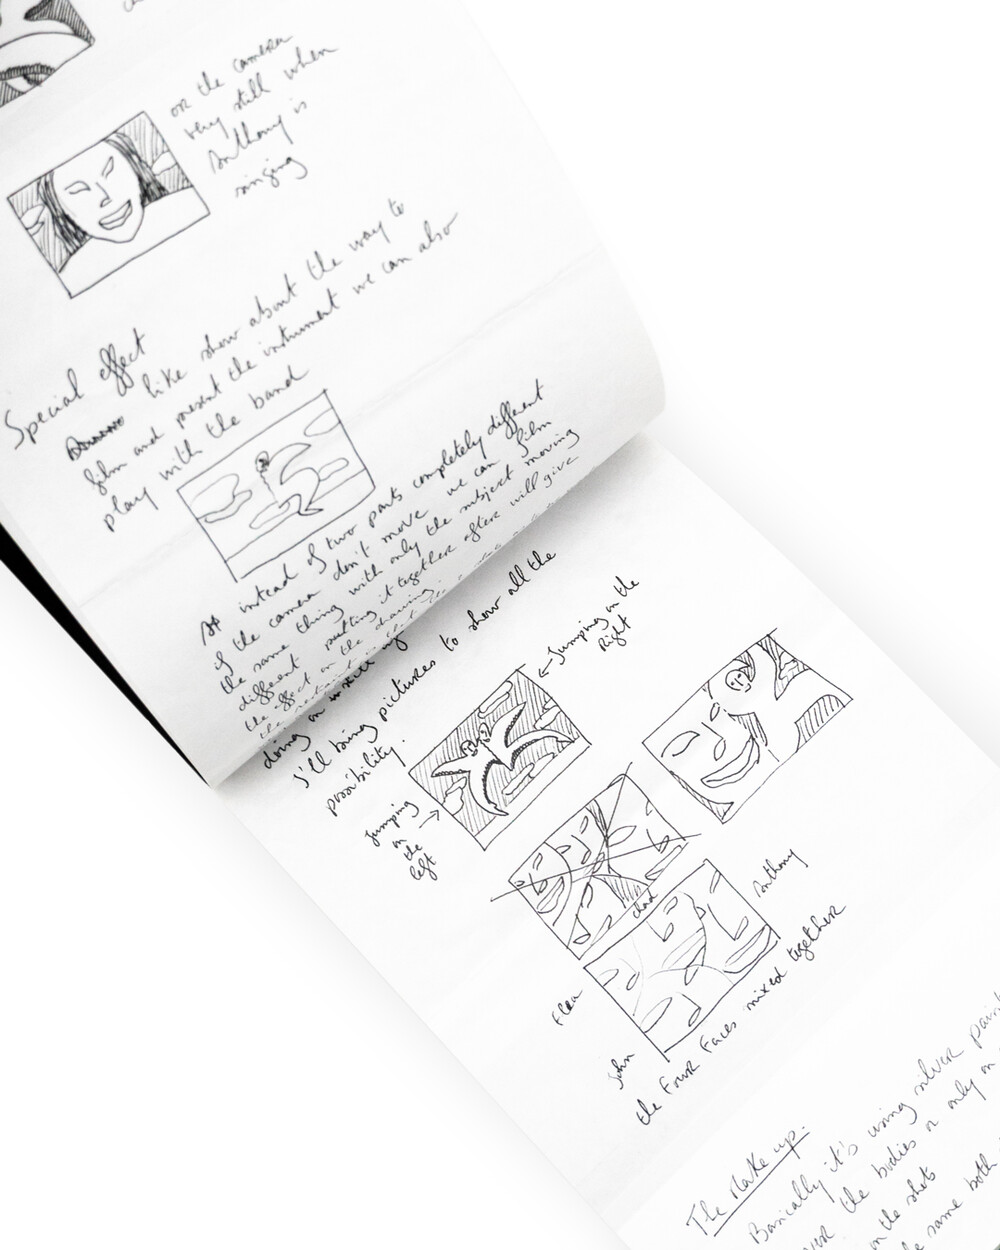 or the camera
very still when
Anthony is
singing
Special effect
like show about the way to
film and present the instrument we can also
play with the band
instead of two parts completely different
if the camera don't move we can film
the same thing with only the subject moving
different putting it together after will give
the effect on the drawing.
doing
I'll bring pictures to show all the
possibility.
← Jumping on the
Right
Jumping →
on
the
left
chad
Anthony
Flea
John
the Four Faces mixed together
The Make up:
Basically it's using silver paint
the bodies or only on
on the shots
same both